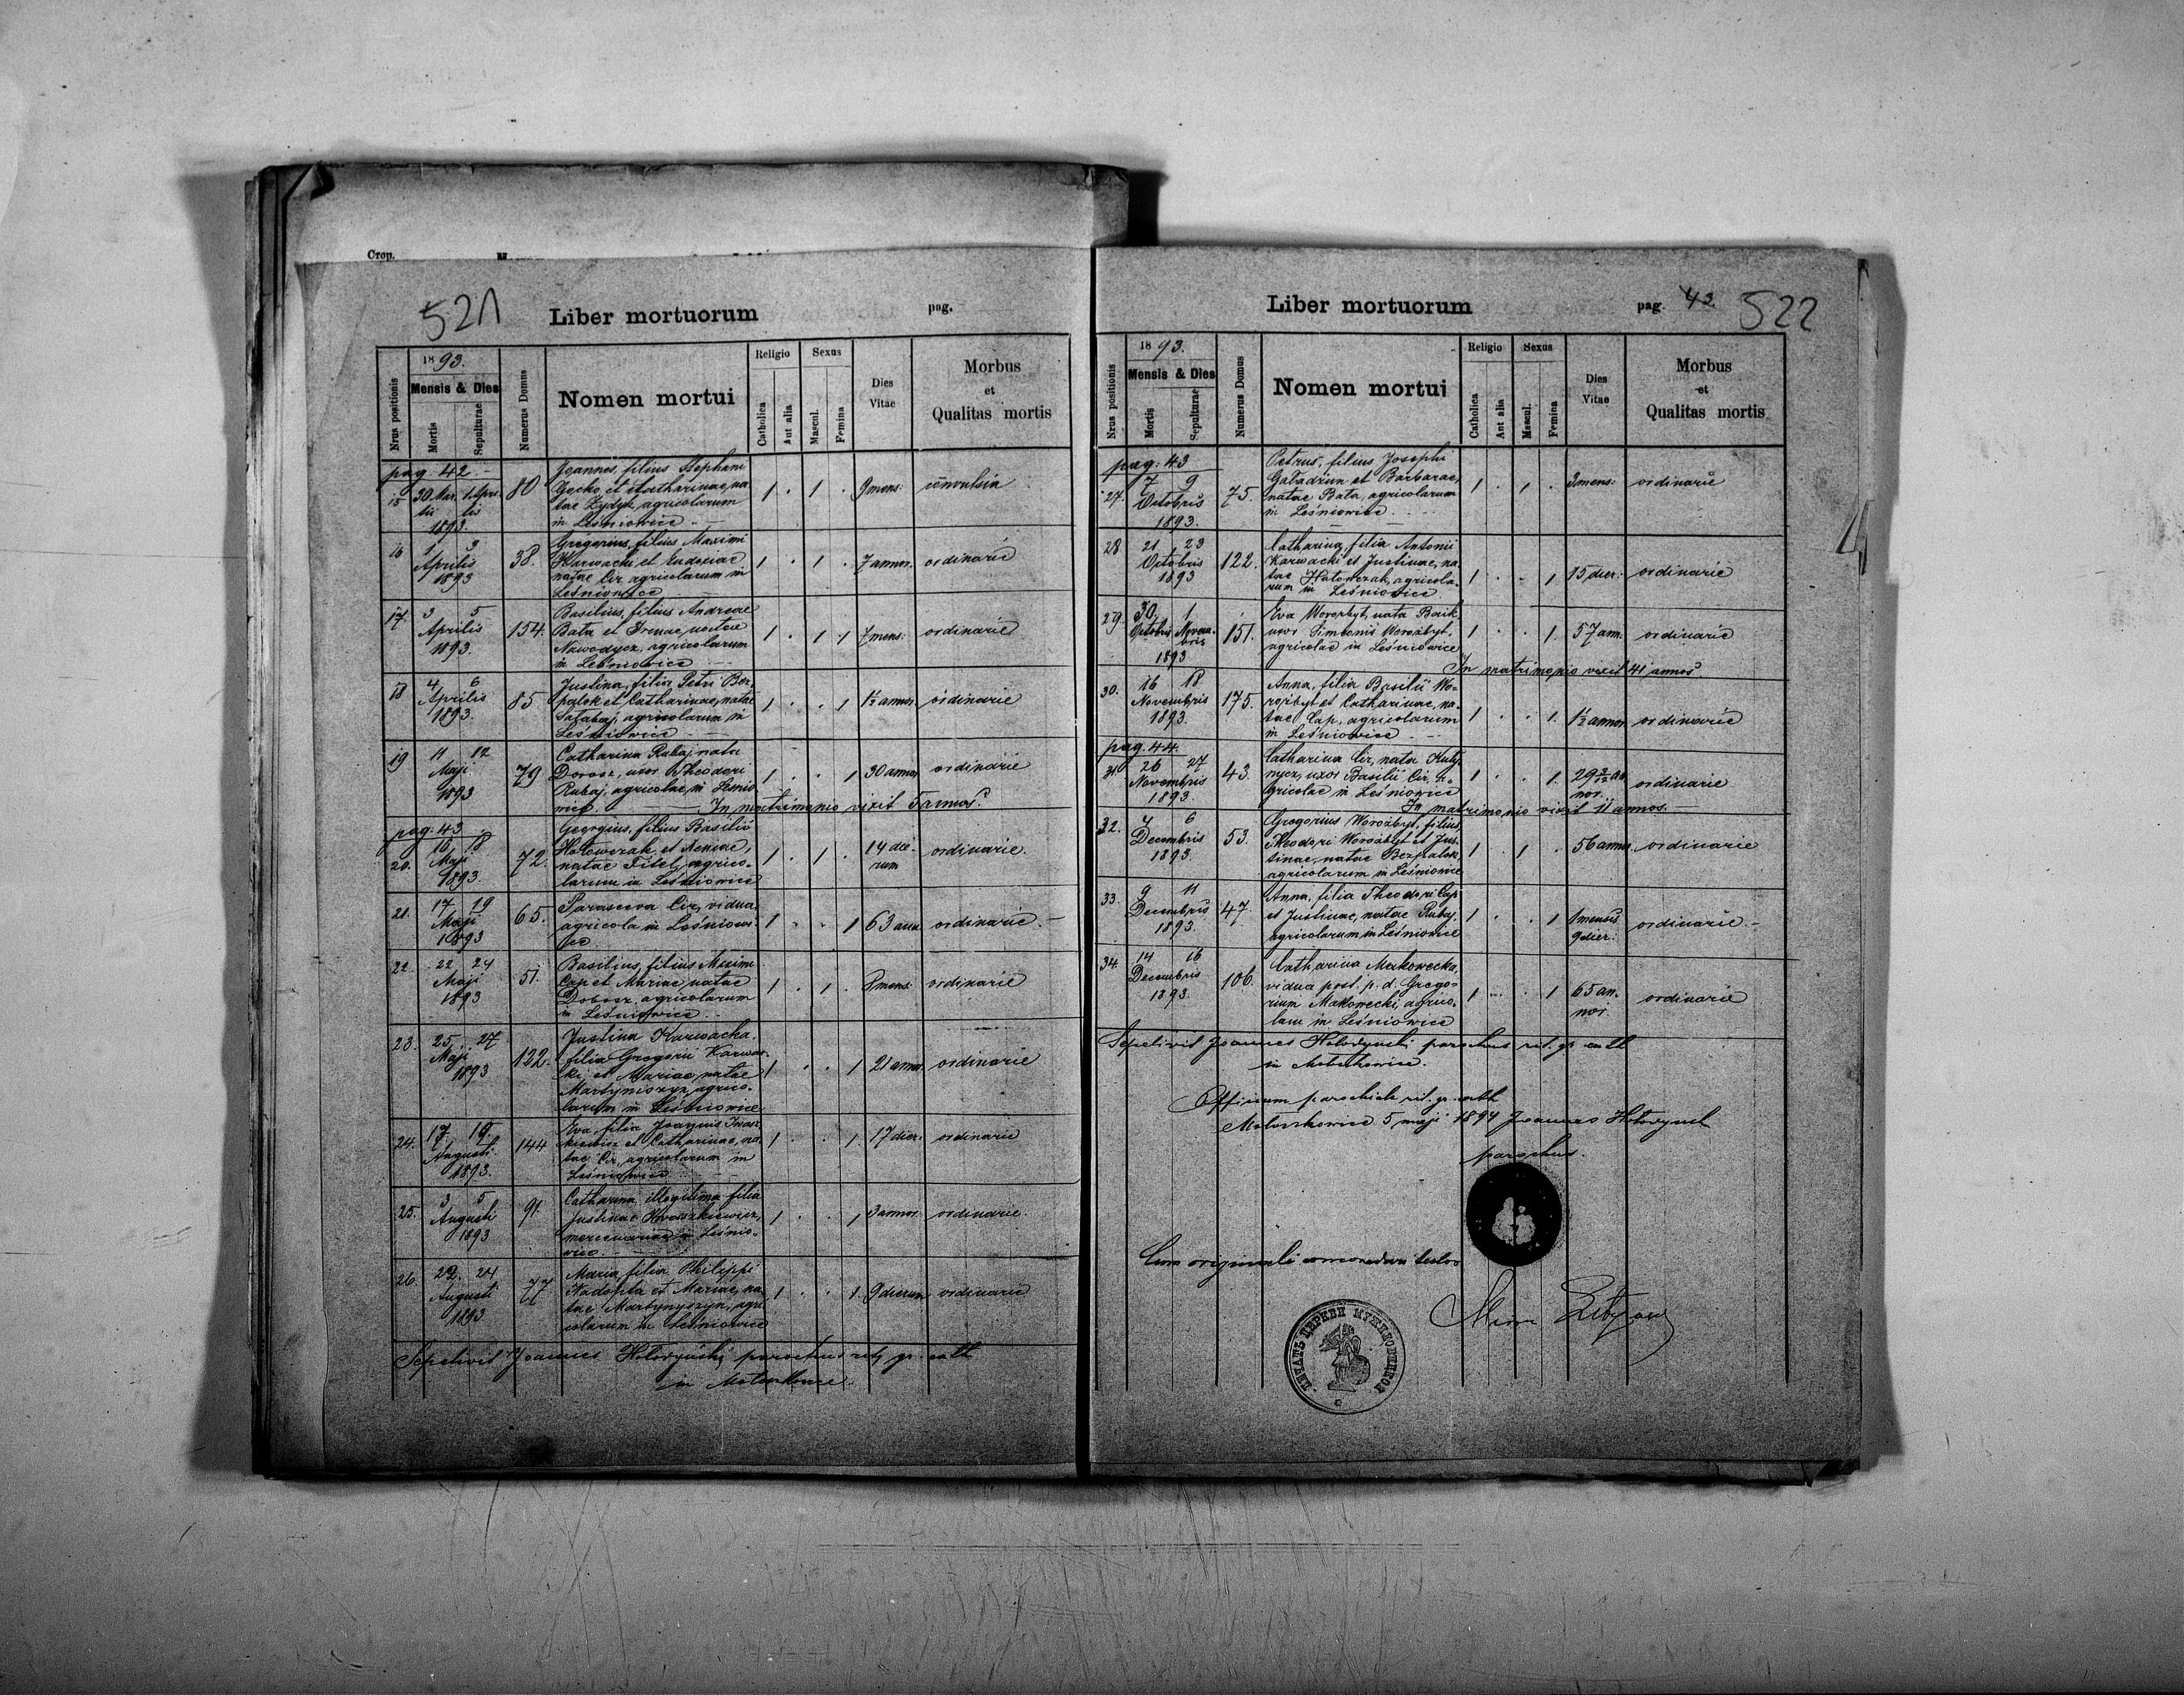 521
Liber mortuorum
pag.
Nrus positionis
1893.
Mensis & Dies
Mortis
Sepulturae
Numerus Domus
Nomen mortui
Religio
Catholica
Aut alia
Sexus
Mascul.
Femina
Dies Vitae
Morbus
et
Qualitas mortis
pag. 42.
15 30 Mar- 1 Apri- 80 Joannes, filius Stephani
tii lis Gocko et Catharinae, na
1893. tae Zydyk, agricolarum
in Leśniowice 1 . 1 . 9 mens: convulsia
16 1 3 Gregorius, filius Maximi
Aprilis 38. Karwacki et Eudociae
1893 natae Cir, agricolarum in
Leśniowice 1 . 1 . 7 annor. ordinarie
17. 3 5 Basilius, filius Andreae
Aprilis 154. Bata et Irenae, natae
1893. Nawodycz, agricolarum
in Leśniowice 1 . 1 . 7 mens: ordinarie
18 4 6 Justina, filia Petri Bez-
Aprilis 85 palok et Catharinae, natae
1893. agricolarum in
Leśniowice 1 . . 1 1½ annor. ordinarie
19 11 12 Catharina Rubaj, nata
Maji 79 Dorosz, uxor Theodori
1893 Rubaj, agricolae in Leśnio-
wice 1 . . 1 30 annor. ordinarie
In matrimonio vixit 5 annos.
pag. 43
20. 16 18 Georgius, filius Basilii
Maji 72. Hołowczak et Xeniae,
1893. natae Fitel, agrico-
larum in Leśniowice 1 . 1 . 14 die-
rum ordinarie.
21. 17 19 Parasceva Cir, vidua
Maji 65. agricola in Leśniowi-
1893 ce 1 . . 1 63 ann. ordinarie.
22. 22 24 Basilius, filius Maximi
Maji 51. Cap et Mariae, natae
1893 Dobosz, agricolarum
in Leśniowice 1 . 1 . 8 mens. ordinarie
23. 25. 27 Justina Karwacka,
Maji 122. filia Gregorii Karwac-
1893 ki et Mariae, natae
Martyniszyn, agrico-
larum in Leśniowice 1 . . 1 21 annor. ordinarie
24. 17 19. Eva, filia Joannis Iwasz-
Augusti 144 kiewicz et Catharinae, na-
1893. tae Cir, agricolarum in
Leśniowice 1 . . 1 17 dier. ordinarie
25. 3 5 Catharina, illegitima filia
Augusti 91. Justinae Iwaszkiewicz,
1893 mercenariae in Leśnio-
wice 1 . . 1 3 annor. ordinarie.
26. 22. 24 Maria, filia Philippi
Augusti 77 Kadopta et Mariae, na-
1893 tae Martynyszyn, agri-
colarum in Leśniowice 1 . . 1. 9 dierum ordinarie
Sepelivit Joannes parochus rit. gr. cath.
in
Liber mortuorum
pag. 43. 522
Nrus positionis
1893.
Mensis & Dies
Mortis
Sepulturae
Numerus Domus
Nomen mortui
Religio
Catholica
Aut alia
Sexus
Mascul.
Femina
Dies Vitae
Morbus
et
Qualitas mortis
pag: 43
27. 7 9 Petrus, filius Josephi
Octobris 75. et Barbarae,
1893. natae Bata, agricolarum
in Leśniowice. 1 . 1 . 3 mens: ordinarie
28 21 23 Catharina, filia Antonii
Octobris 122. Karwacki et Justinae, na-
1893 tae Hołowczak, agricola-
rum in Leśniowice 1 . . 1 15 dier: ordinarie
29. 30. 1 Eva Worożbyt, nata Baik,
Octobris Novem- 151. uxor Simeonis Worożbyt,
bris agricolae in Leśniowice
1893 1 . . 1. 57 ann. ordinarie
In matrimonio vixit 41 annos.
30. 16 18 Anna, filia Basilii Wo-
Novembris 175. rożbyt et Catharinae, na-
1893. tae Cap, agricolarum
in Leśniowice 1 . . 1. 1½ annor. ordinarie
pag. 44.
31. 26 27 Catharina Cir, nata
Novembris 43. uxor Basilii Cir, a-
1893. gricolae in Leśniowice 1 . . 1. 29 an-
nor. ordinarie
In matrimonio vixit 11 annos.
32. 4 6 Gregorius Worożbyt, filius
Decembris 53. Theodori Worożbyt et Jus-
1893. tinae, natae Bezpalok,
agricolarum in Leśniowice 1 . 1 . 56 annor. ordinarie
33. 9 11 Anna, filia Theodori Cap
Decembris 47. et Justinae, natae Rubaj,
1893. agricolarum in Leśniowice 1 . . 1 1 mensis
9 dier: ordinarie
34. 14 16 Catharina Makowecka,
Decembris 106. vidua post. p. d. Grego-
1893. rium Makowecki, agrico-
lam in Leśniowice 1 . . 1 65 an-
nor. ordinarie
Sepelivit Joannes parochus rit. gr. cath.
in
Officium parochiale rit. gr. cath.
5 maji 1894 Joannes
parochus.
Cum originali concordare testor
ПЕЧАТЬ ЦЕРКВИ